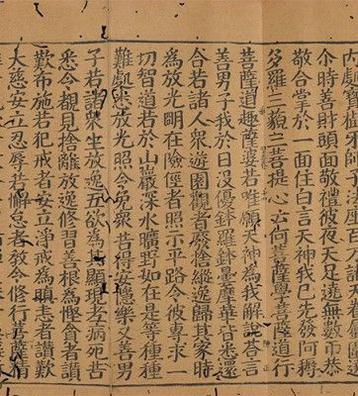 尒時善財頭面敬禮彼夜天足遶無數帀恭
敬合掌於一面住白言天神我已先發阿耨
多羅三藐三菩提心云何菩薩學菩薩道行
菩薩道趣薩婆若唯願天神為我解說荅言
善男子我於日沒優鉢羅鉢曇摩華皆悉還
合若諸人衆遊園觀者廢捨縱逸歸其家時
為放光明在險徑者照示平路令彼專求一
切智道若於山巖深水曠野如在是等種種
難處悉放光照令免衆苦得安隱樂又善男
子若諸衆生放逸五欲為其顯現老病死苦
悉令觀見捨離放逸修習善根為慳貪者讚
歎布施若犯戒者安立淨戒為瞋恚者讚歎
大慈安立忍辱若懈怠者教令修行菩薩